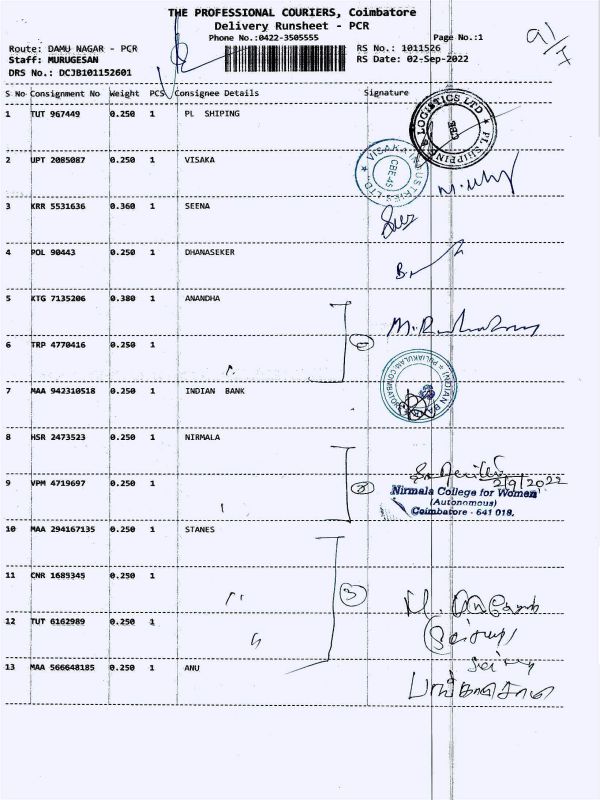 THE PROFESSIONAL COURIERS, Coimbatore
Delivery Runsheet - PCR
Phone No.:0422-3505555 Page No.:1
Route: DAMU NAGAR - PCR RS No.: 1011526
Staff: MURUGESAN RS Date: 02-Sep-2022
DRS No.: DCJB101152601
S No Consignment No Weight PCS Consignee Details Signature
1 TUT 967449 0.250 1 PL SHIPING
PL SHIPPING & LOGISTICS LTD
CBE
2 UPT 2085087 0.250 1 VISAKA
VISAKA INDUSTRIES LTD.
CBE-45
3 KRR 5531636 0.360 1 SEENA
4 POL 90443 0.250 1 DHANASEKER
5 KTG 7135206 0.380 1 ANANDHA
6 TRP 4770416 0.250 1
7 MAA 942310518 0.250 1 INDIAN BANK
8 HSR 2473523 0.250 1 NIRMALA
2/9/2022
9 VPM 4719697 0.250 1
2
Nirmala College for Women
(Autonomous)
Coimbatore - 641 018.
10 MAA 294167135 0.250 1 STANES
11 CNR 1685345 0.250 1
3
12 TUT 6162989 0.250 1
13 MAA 566648185 0.250 1 ANU